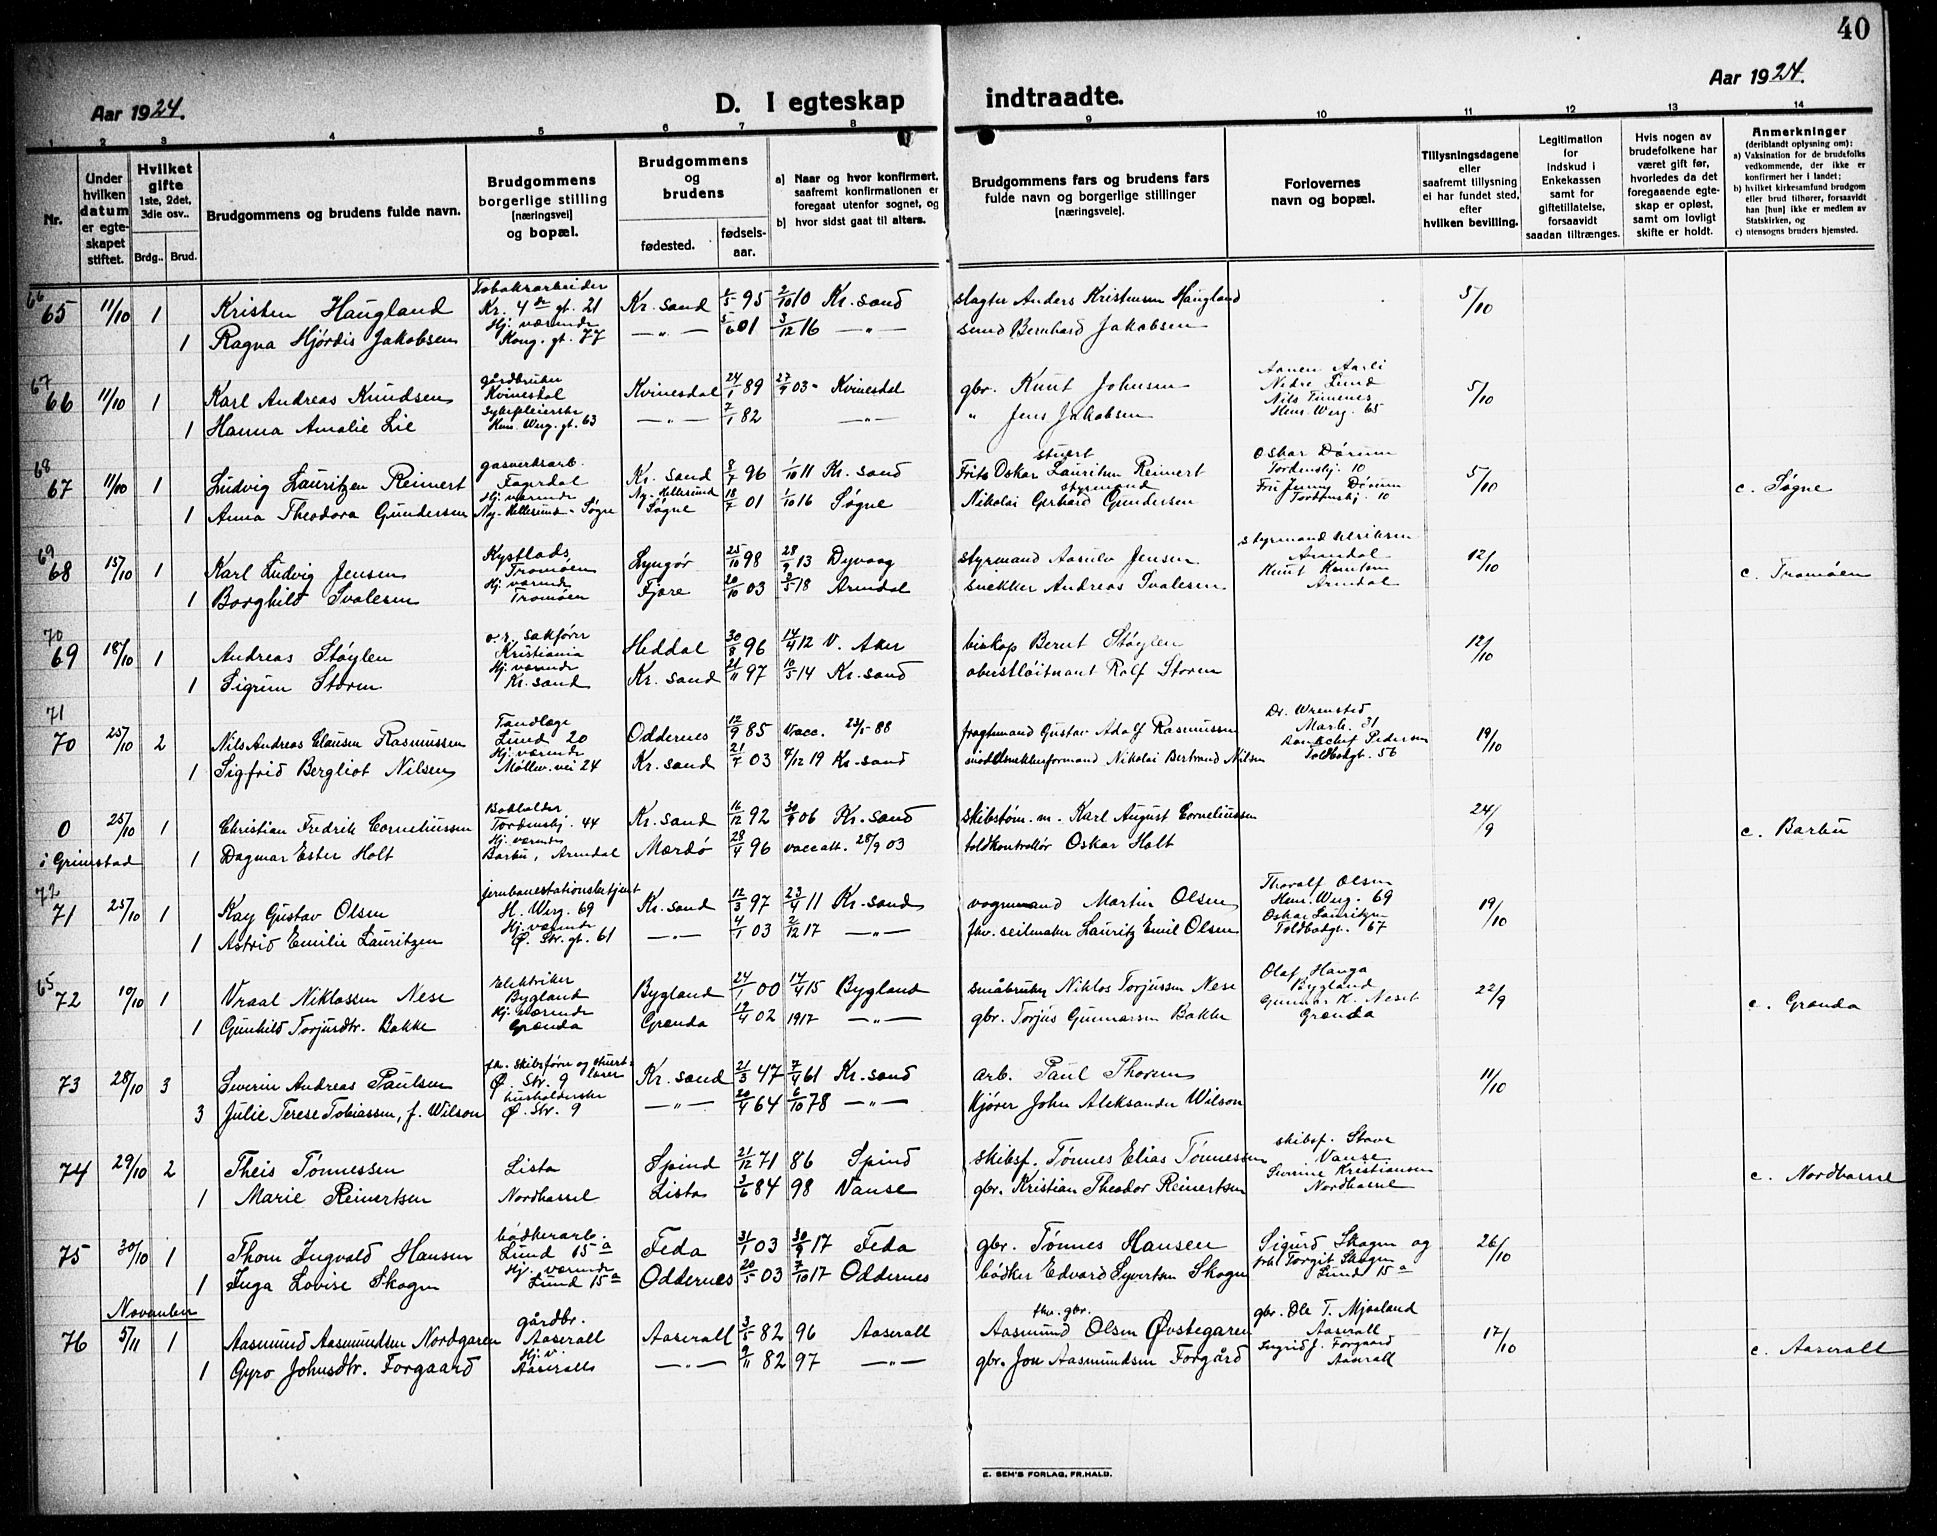 40
Aar 1924.
D. I egteskap indtraadte.
Aar 1924.
1 2 3 4 5 6 7 8 9 10 11 12 13 14
Nr.
Under hvilken datum er egteskapet stiftet.
Hvilket gifte 1ste, 2det, 3die osv..
Brdg.. Brud.
Brudgommens og brudens fulde navn.
Brudgommens borgerlige stilling [næringsvei] og bopæl.
Brudgommens og brudens
fødested. fødselsaar.
a) Naar og hvor konfirmert, saafremt konfirmationen er foregaat utenfor sognet, og
b) hvor sidst gaat til alters.
Brudgommens fars og brudens fars fulde navn og borgerlige stillinger [næringsveie].
Forlovernes navn og bopæl.
Tillysningsdagene eller saafremt tillysning ei har fundet sted, efter hvilken bevilling.
Legitimation for indskud i Enkekassen samt for giftetillatelse, forsaavidt saadan tiltrænges.
Hvis nogen av brudefolkene har været gift før, hvorledes da det foregaaende egteskap er opløst, samt om lovligt skifte er holdt.
Anmerkninger (deriblandt oplysning om):
a) Vaksination for de brudefolks vedkommende, der ikke er konfirmert her i landet;
b) hvilket kirkesamfund brudgom eller brud tilhører, forsaavidt han [hun] ikke er medlem av Statskirken, og
c) utensogns bruders hjemsted.
66 65 11/10 1 Kristen Haugland Tobaksarbeider Kr. 4de gt. 21 Kr. sand 95 2/10 10 Kr. sand slagter Anders Kristensen Haugland 5/10
1 Ragna Hjördis Jakobsen Hj. værende Kong. gt. 77 —„— 5/6 01 3/12 16 —„— smed Bernhard Jakobsen
67 66 11/10 1 Karl Andreas Knudsen gårdbruker Kvinesdal Kvinesdal 24/1 89 27/9 03 Kvinesdal gbr. Knut Johnsen Aanen Aarli Nedre Lund 5/10
1 Hanna Amalie Lie Sykepleierske Hen. Werg. gt. 63 —„— 7/1 82 —„— „ Jens Jakobsen Nils Hen. Werg. 65
68 67 11/10 1 Ludvig Lauritzen Reinert gasverksarb. Fagerdal Kr. sand 8/7 96 1/10 11 Kr. sand stuert Frits Oskar Lauritzen Reinert Oskar Dørum Tordenskj. 10 5/10
1 Anna Theodora Gundersen Hj. værende Ny-Hellesund - Søgne Ny-Hellesund Søgne 18/7 01 1/10 16 Søgne styrmand Nikolai Gerhard Gundersen Fru Jenny Dørum Tordenskj. 10 c. Søgne
69 68 15/10 1 Karl Ludvig Jensen Kystlods Tromøen Lyngör 25/10 98 28/9 13 Dyvaag styrmand Aanulv Jensen styrmand Arendal 12/10
1 Borghild Svalesen Hj. værende Tromøen Fjære 20/10 03 3/5 18 Arendal snekker Andreas Svalesen Knut Knutsen Arendal c. Tromøen
70 69 18/10 1 Andreas Støylen o.r. sakfører Kristiania Heddal 30/8 96 14/4 12 V. Aker biskop Bernt Støylen 12/10
1 Sigrun Storm Hj. værende Kr. sand Kr. sand 21/11 97 10/5 14 Kr. sand oberstløitnant Rolf Storm
71 70 25/10 2 Nils Andreas Clausen Rasmussen Tandlæge Lund 20 Oddernes 12/9 85 Vacc. 23/5 88 fragtemand Gustav Adolf Rasmussen Dr. Wrensted Mark. 31 19/10
1 Sigfrid Bergliot Nilsen Hj. værende Møllev. vei 24 Kr. sand 21/7 03 7/12 19 Kr. sand modelsnekkerformand Nikolai Bertrand Nilsen Pedersen Toldbodgt. 56
0 25/10 1 Christian Fredrik Corneliussen Bokholder Tordenskj. 44 Kr. sand 16/12 92 30/9 06 Kr. sand skibstøm. m. Karl August Corneliussen 24/9
i Grimstad 1 Dagmar Ester Holt Hj. værende Barbu, Arendal Mærdø 28/4 96 vaccatt. 28/9 03 toldkontrollør Oskar Holt c. Barbu
72 71 25/10 1 Kay Gustav Olsen jernbanestationsbetjent H. Werg. 69 Kr. sand 12/3 97 23/4 11 Kr. sand vognmand Martin Olsen Thoralf Olsen Hen. Werg. 69 19/10
1 Astrid Emilie Lauritzen Hj. værende Ø. Str. gt. 61 —„— 4/1 03 2/12 17 —„— fhv. seilmaker Lauritz Emil Olsen Oskar Lauritzen Toldbodgt. 67
65 72 10/10 1 Vraal Niklassen Nese Elektriker Bygland Bygland 24/1 00 14/4 15 Bygland småbruker Niklos Torjussen Nese Olaf Hanga Bygland 22/9
1 Gunhild Torjusdtr. Bakke Hj. Værende Grænda Grænda 12/4 02 1917 —„— gbr. Torjus Gunnarsen Bakke Gunnar K. Neset Grænda c. Grænda
73 28/10 3 Severin Andreas Paulsen fh. skibsfører og stuert Ø. Str. 9 Kr. sand 21/3 47 7/4 61 Kr. sand arb. Paul Thorsen 11/10
3 Julie Terese Tobiassen, f. Wilson husholderske Ø. Str. 9 —„— 20/4 64 6/10 78 —„— kjører John Aleksander Wilson
74 29/10 2 Theis Tønnessen Lista Spind 21/12 71 86 Spind skibsf. Tønnes Elias Tønnessen skibsf. Stave Vanse
1 Marie Reinertsen Nordhassel Lista 3/6 84 98 Vanse gbr. Kristian Theodor Reinertsen Severine Kristiansen Nordhassel c. Nordhassel
75 30/10 1 Thom Ingvald Hansen bødkerarb. Lund 15a Feda 31/1 03 30/9 17 Feda gbr. Tønnes Hansen Sigurd Skogen og 26/10
1 Inga Lovise Skogen Hj. værende Lund 15a Oddernes 20/5 03 7/10 17 Oddernes bødker Edvard Syvertsen Skogen frk. Torgit Skogen Lund 15a
November
76 5/11 1 Aasmund Aasmundsen Nordgaren gårdbr. Aaserall Aaserall 3/5 82 96 Aaserall fhv. gbr. Aasmund Olsen Øvstegaren gbr. Ole T. Mjaaland Aaserall 17/10
1 Gyro Johnsdtr. Forgaard Hj. v. Aaseralls —„— 9/11 82 97 —„— gbr. Jon Aasmundsen Forgård Ingrid J. Forgaard Aaserall c. Aaserall
E. SEM'S FORLAG, FR.HALD.